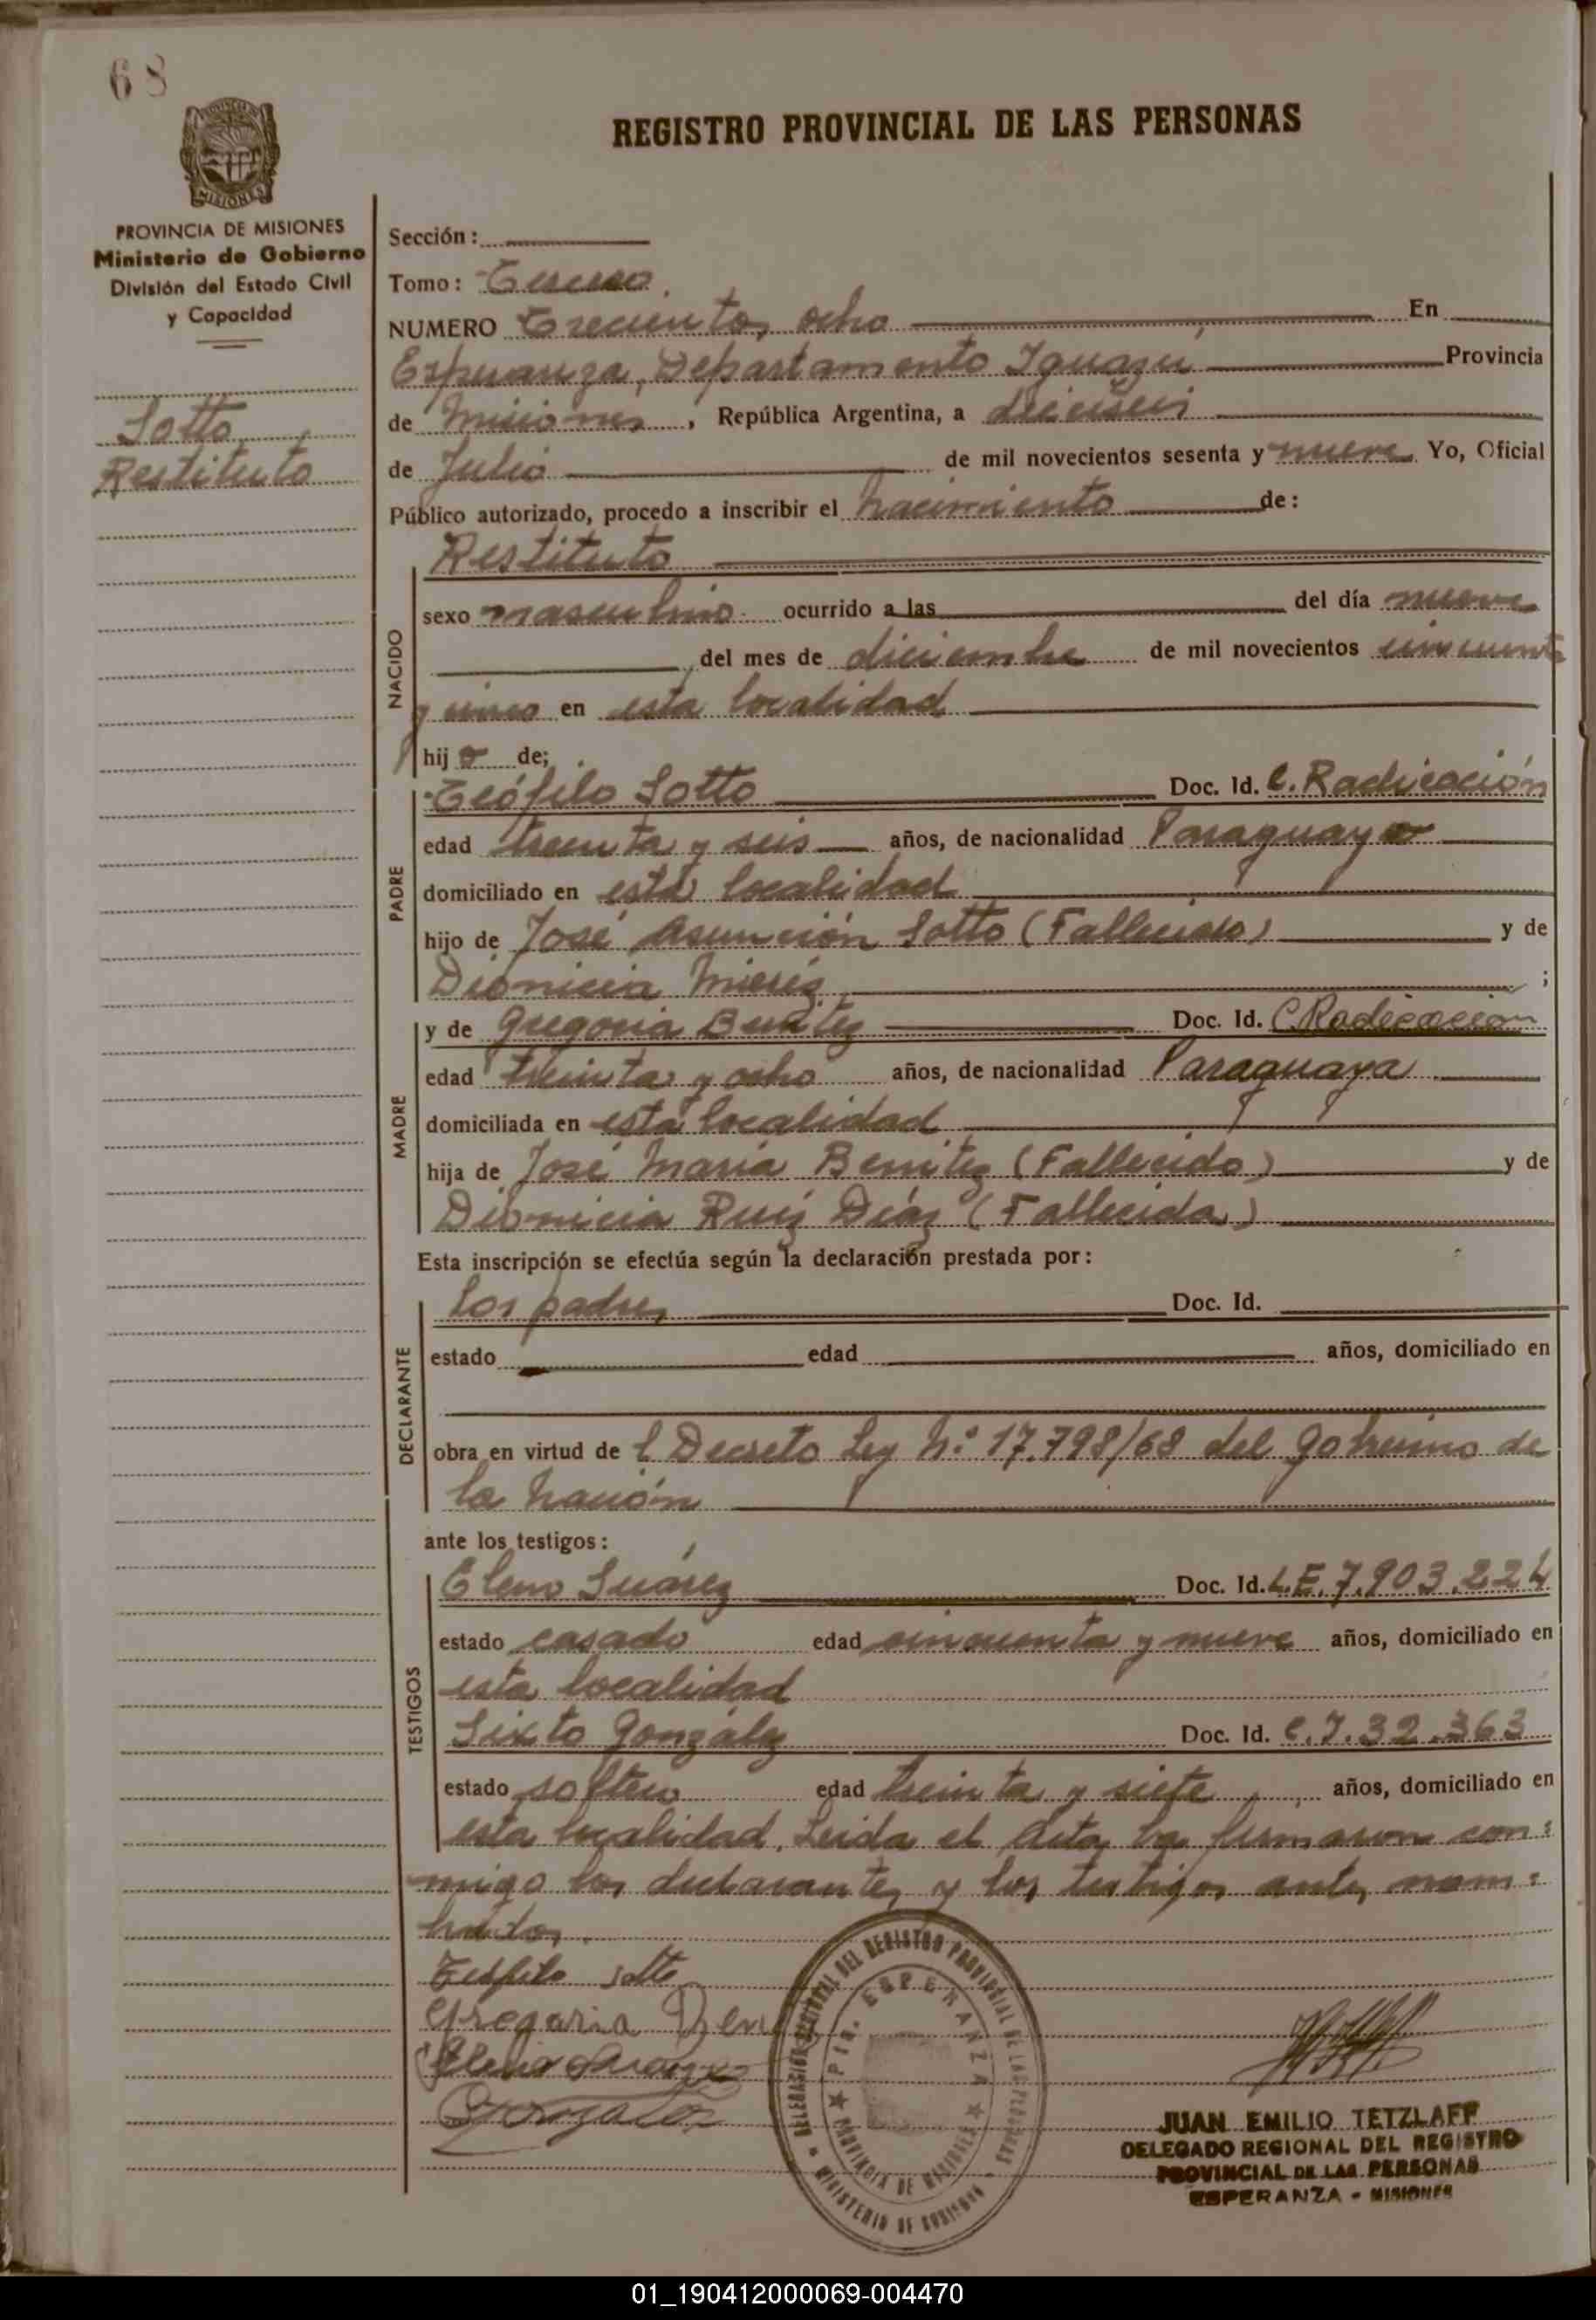 68
MISIONES
PROVINCIA DE MISIONES
Ministerio de Gobierno
División del Estado Civil
y Capacidad
Sotto
Restituto
REGISTRO PROVINCIAL DE LAS PERSONAS
Sección:
Tomo: Tercero
NUMERO Trecientos ocho En
Esperanza, Departamento Iguazú Provincia
de Misiones, República Argentina, a dieciseis
de Julio de mil novecientos sesenta y nueve Yo, Oficial
Público autorizado, procedo a inscribir el nacimiento de:
NACIDO
Restituto
sexo masculino ocurrido a las del día nueve
del mes de diciembre de mil novecientos cincuenta
y cinco en esta localidad
hijo de;
PADRE
Teófilo Sotto Doc. Id. C. Radicación
edad treinta y seis años, de nacionalidad Paraguayo
domiciliado en esta localidad
hijo de José Asunción Sotto (Fallecido) y de
Dionicia Mieréz ;
MADRE
y de Gregoria Benítez Doc. Id. C Radicación
edad treinta y ocho años, de nacionalidad Paraguaya
domiciliada en esta localidad
hija de José María Benítez (Fallecido) y de
Dionicia Ruiz Díaz (Fallecida)
Esta inscripción se efectúa según la declaración prestada por:
DECLARANTE
los padres Doc. Id.
estado edad años, domiciliado en
obra en virtud de l Decreto Ley N:º 17.798/68 del Gobierno de
la Nación
ante los testigos:
TESTIGOS
Eleno Suárez Doc. Id. L.E. 7.903.224
estado casado edad cincuenta y nueve años, domiciliado en
esta localidad
Sixto González Doc. Id. C.I. 32.363
estado soltero edad treinta y siete años, domiciliado en
esta localidad. Leida el Acta, la firmaron con:
migo los declarantes y los testigos antes nom:
brados.
Teofilo Sotto
Gregoria Beni
Eleno Suarez
Gonzalez
DELEGACION REGIONAL DEL REGISTRO PROVINCIAL DE LAS PERSONAS
MINISTERIO DE GOBIERNO
Pto. ESPERANZA
PROVINCIA DE MISIONES
JUAN EMILIO TETZLAFF
DELEGADO REGIONAL DEL REGISTRO
PROVINCIAL DE LAS PERSONAS
ESPERANZA - MISIONES
01_190412000069-004470